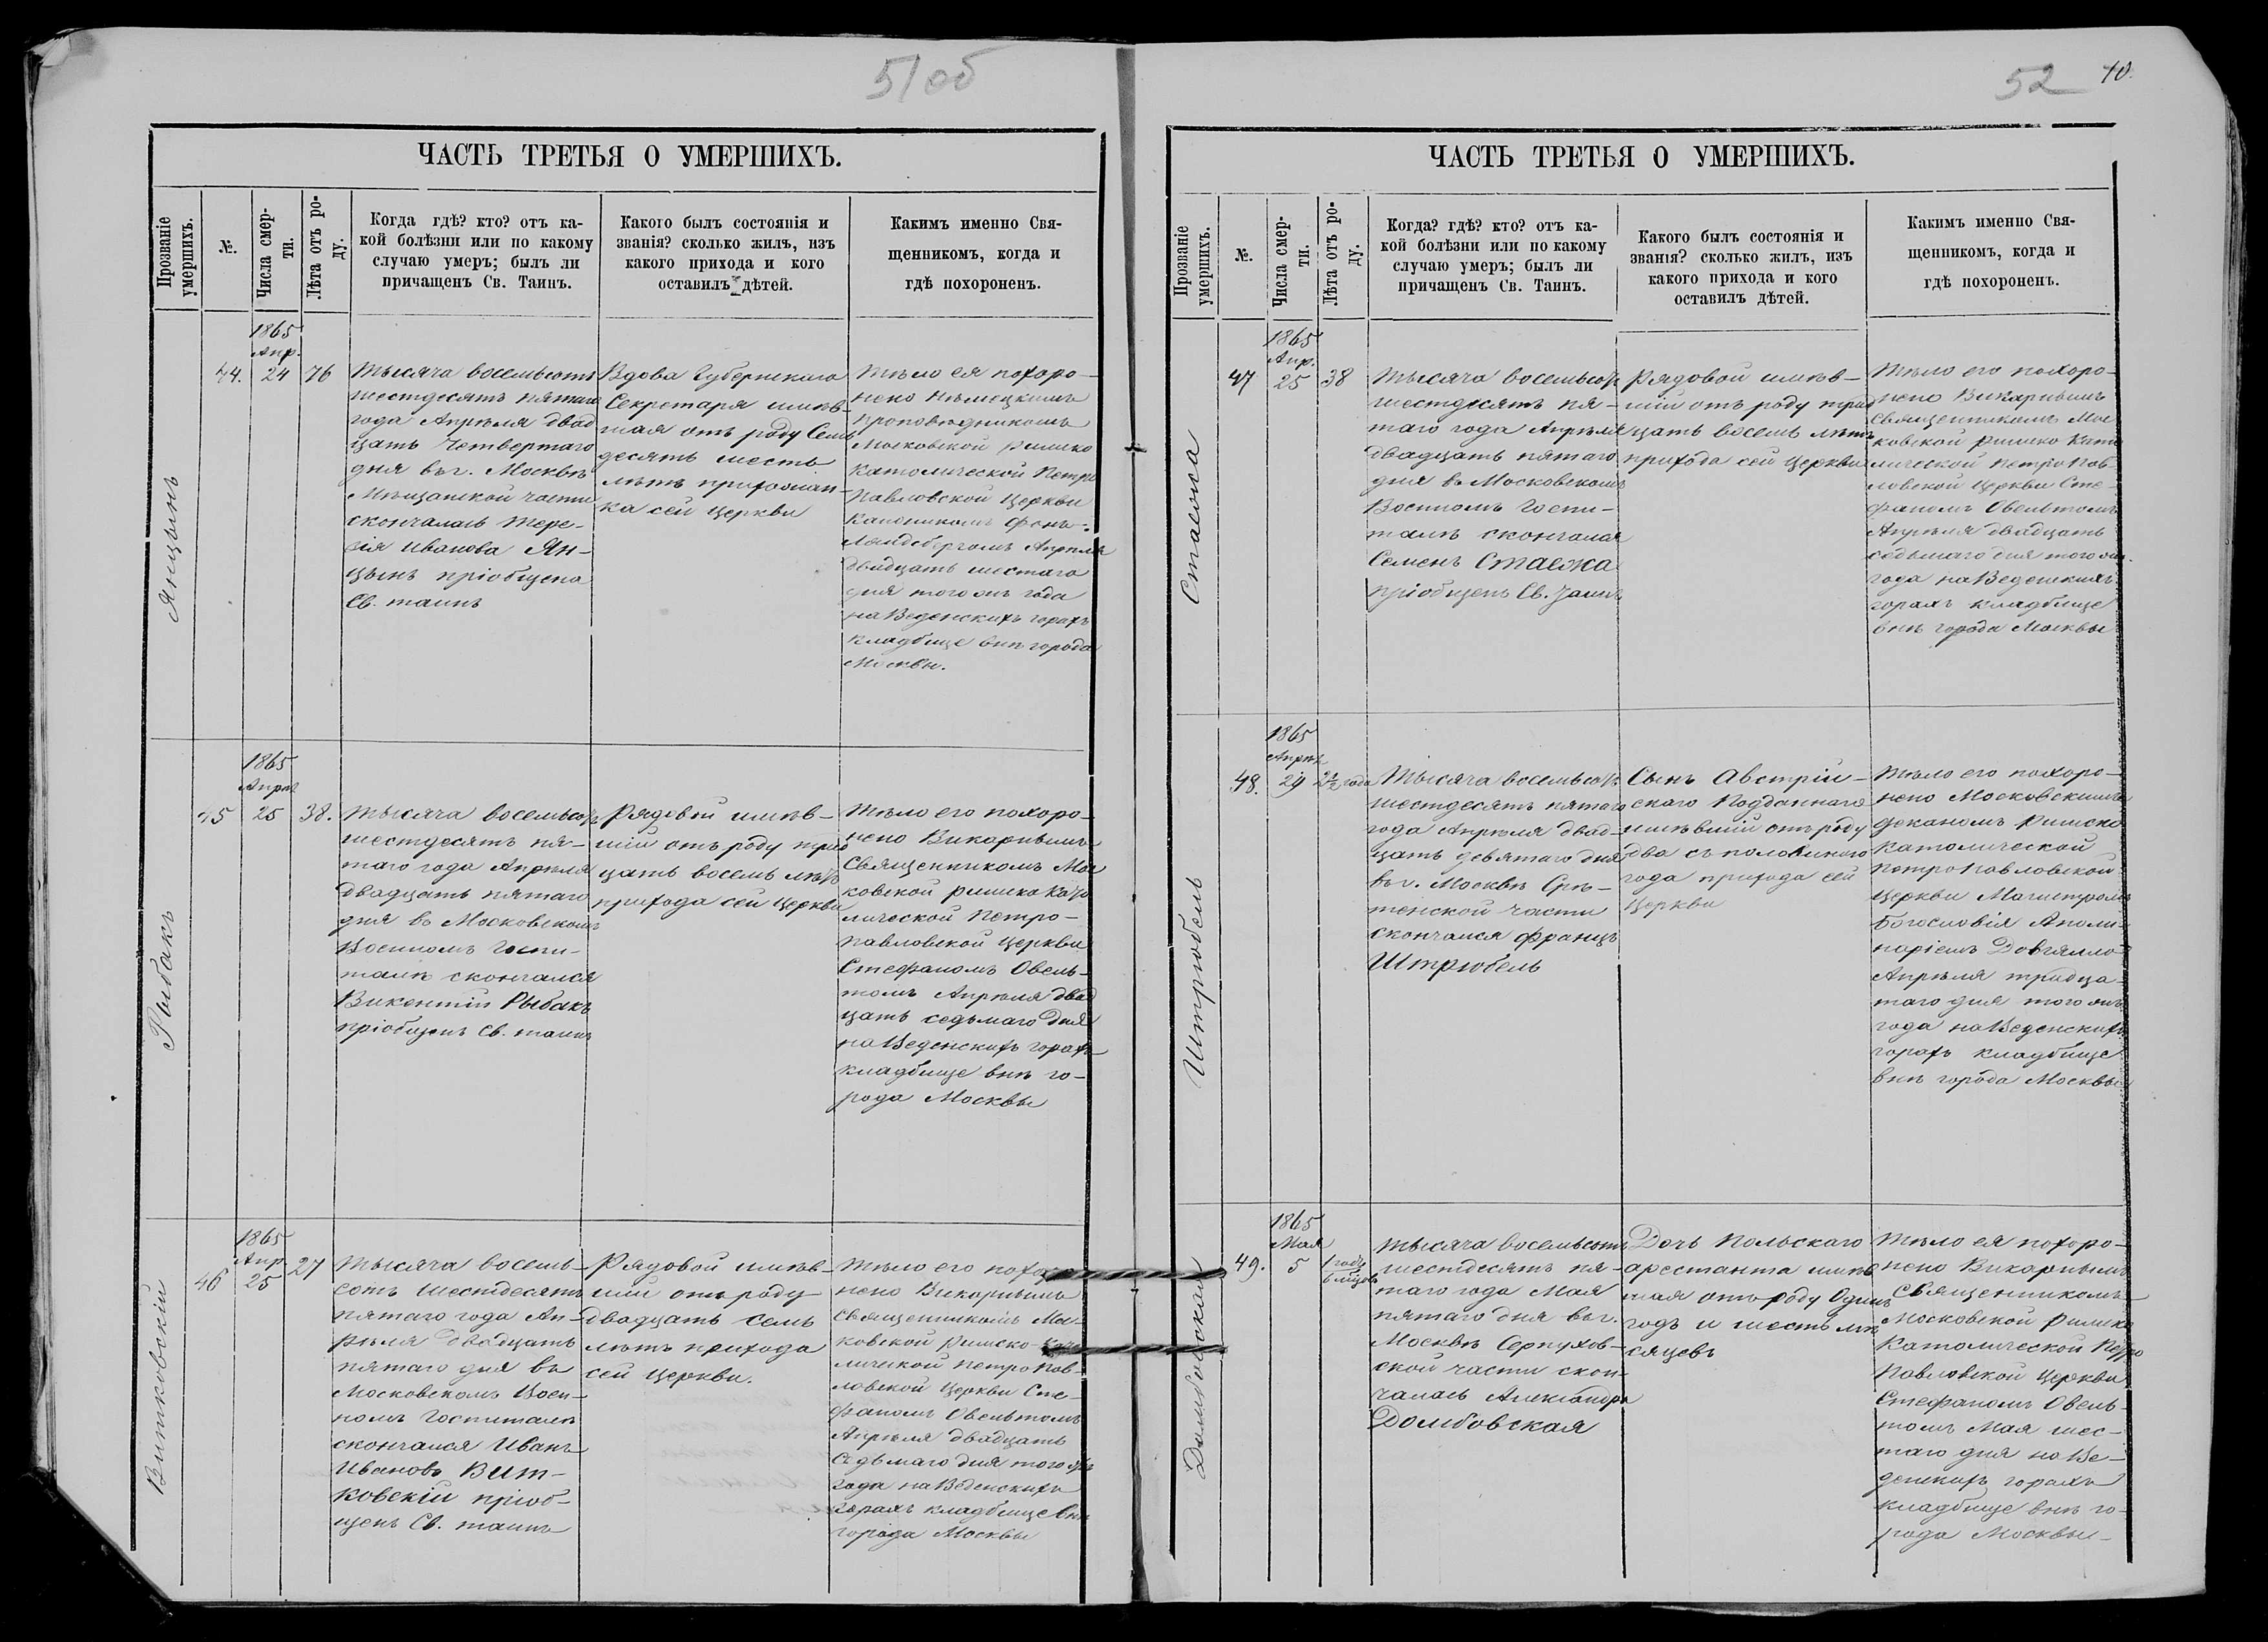 51об
ЧАСТЬ ТРЕТЬЯ О УМЕРШИХЪ.
Прозваніе умершихъ.
№.
Числа смерти.
Лѣта отъ роду.
Когда гдѣ? кто? отъ ка-
кой болѣзни или по какому
случаю умеръ; былъ ли
причащенъ Св. Таинъ.
Какого былъ состоянія и
званія? сколько жилъ, изъ
какого прихода и кого
оставилъ дѣтей.
Какимъ именно Свя-
щенникомъ, когда и
гдѣ похороненъ.
Янцынъ
44.
1865
Апр.
24
76
Тысяча восемьсотъ
шестдесятъ пятаго
года Апрѣля двад
цать четвертаго
дня въ г. Москвѣ
Мѣщанской части
скончалась Тере-
зія Иванова Ян-
цынъ пріобщена
Св. таинъ
Вдова Губернскаго
Секретаря имѣв-
шая отъ роду Семь
десятъ шесть
лѣтъ прихожан-
ка сей церкви
Тѣло ея похоро-
нено Нѣмецкимъ
проповѣдникомъ
Московской Римско
Католической Петро
Павловской Церкви
Каноникомъ Фонъ-
Ландсбергомъ Апрѣля
двадцать шестаго
дня того жъ года
на Веденскихъ горахъ
кладбище внѣ города
Москвы.
Рыбакъ
45
1865
Апрѣ
25
38.
Тысяча восемьсотъ
шестдесятъ пя-
таго года Апрѣля
двадцать пятаго
дня въ Московскомъ
Военномъ Госпи-
талѣ скончался
Викентій Рыбакъ
пріобщенъ Св. таинъ
Рядовой имѣв-
шій отъ роду трид
цать восемь лѣтъ
прихода сей Церкви
Тѣло его похоро-
нено Викарнымъ
Священникомъ Мос
ковской Римско Като
лической Петро-
павловской Церкви
Стефаномъ Овель-
томъ Апрѣля двад
цать седьмаго дня
на Веденскихъ горахъ
кладбище внѣ го-
рода Москвы
Витковскій
46
1865
Апр
25
27
Тысяча восемь-
сотъ шестдесятъ
пятаго года Ап-
рѣля двадцать
пятаго дня въ
Московскомъ Воен-
номъ Госпиталѣ
скончался Иванъ
Ивановъ Вит-
ковскій пріоб-
щенъ Св. таинъ
Рядовой имѣв-
шій отъ роду
двадцать семь
лѣтъ прихода
сей Церкви.
Тѣло его похоро
нено Викарнымъ
Священникомъ Мос-
ковской Римско-Като
лической Петро Пав-
ловской Церкви Сте-
фаномъ Овельтомъ
Апрѣля двадцать
Седьмаго дня того жъ
года на Веденскихъ
горахъ кладбище внѣ
города Москвы
52
10.
ЧАСТЬ ТРЕТЬЯ О УМЕРШИХЪ.
Прозваніе умершихъ.
№.
Числа смерти.
Лѣта отъ роду.
Когда? гдѣ? кто? отъ ка-
кой болѣзни или по какому
случаю умеръ; былъ ли
причащенъ Св. Таинъ.
Какого былъ состоянія и
званія? сколько жилъ, изъ
какого прихода и кого
оставилъ дѣтей.
Какимъ именно Свя-
щенникомъ, когда и
гдѣ похороненъ.
Стаежа
47
1865
Апр.
25
38
Тысяча восемьсотъ
шестдесятъ пя-
таго года Апрѣля
двадцать пятаго
дня въ Московскомъ
Военномъ Госпи-
талѣ скончался
Семенъ Стаежа
пріобщенъ Св. Таинъ
Рядовой имѣв-
шій отъ роду трид
цать восемь лѣтъ
прихода сей Церкви
Тѣло его похоро-
нено Викарнымъ
Священникомъ Мос
ковской Римско Като
лической Петро Пав-
ловской Церкви Сте-
фаномъ Овельтомъ
Апрѣля двадцать
седьмаго дня того жъ
года на Веденскихъ
горахъ кладбище
внѣ города Москвы
Штрюбель
48.
1865
Апрѣл
29
2½ года
Тысяча восемьсотъ
шестдесятъ пятаго
года Апрѣля двад-
цать девятаго дня
въ г. Москвѣ Срѣ-
тенской части
скончался Францъ
Штрюбель
Сынъ Австрій-
скаго Подданнаго
имѣвшій отъ роду
два съ половиною
года прихода сей
Церкви
Тѣло его похоро-
нено Московскимъ
деканомъ Римско
Католической
Петро Павловской
Церкви Магистромъ
Богословія Аполи-
наріемъ Довгялло
Апрѣля тридца-
таго дня того жъ
года на Веденскихъ
горахъ кладбище
внѣ города Москвы
Домбовская
49.
1865
Мая
5
1 годъ
6 мѣсцов
Тысяча восемьсотъ
шестдесятъ пя-
таго года Мая
пятаго дня въ г.
Москвѣ Серпухов-
ской части скон-
чалась Александра
Домбовская
Дочь Польскаго
арестанта имѣв
шая отъ роду Одинъ
годъ и шесть мѣ
сяцевъ
Тѣло ея похоро-
нено Викарнымъ
Священникомъ
Московской Римско
Католической Петро
Павловской Церкви
Стефаномъ Овель-
томъ Мая шес-
таго дня на Ве-
денскихъ горахъ
кладбище внѣ го-
рода Москвы-